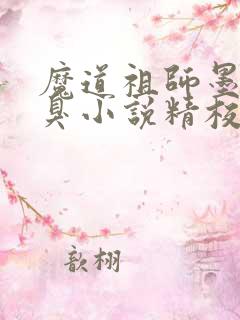 魔道祖師墨
臭小説精校
歆栩